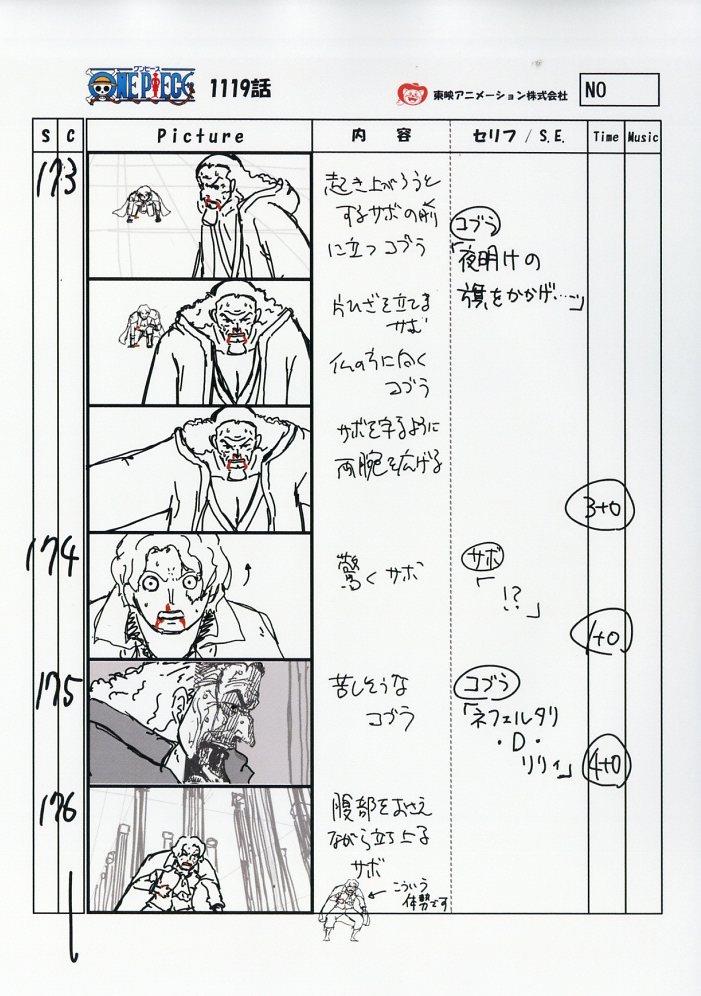 ワンピース
ONE PIECE 1119話
東映アニメーション株式会社
NO
S C Picture 内容 セリフ / S.E. Time Music
173
起き上がろうと
するサボの前
に立つコブラ
コブラ
「夜明けの
旗をかかげ…」
片ひざを立てる
サボ
ムの方に向く
コブラ
サボを守るように
両腕を広げる
3+0
174
驚くサボ
サボ
「!?」
1+0
175
苦しそうな
コブラ
コブラ
「ネフェルタリ
・D・
リリィ」
4+0
176
腹部をおさえ
ながら立ち上る
サボ
こういう
体勢です